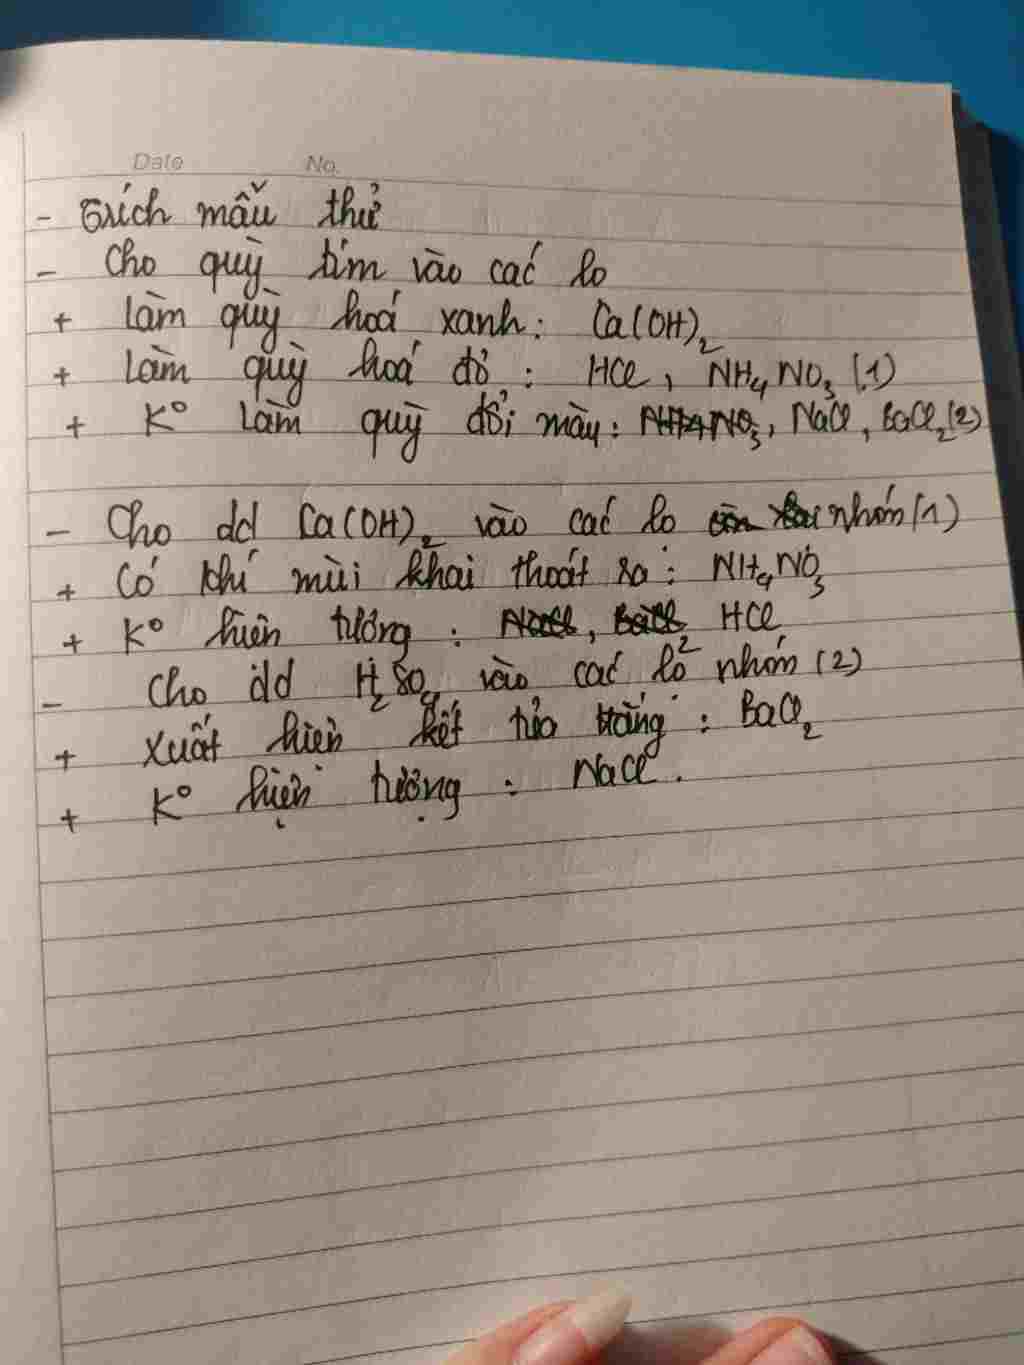 Date No.
- Trích mẫu thử
- Cho quỳ tím vào các lo
+ Làm quỳ hoá xanh: Ca(OH)₂
+ Làm quỳ hoá đỏ: HCl, NH₄NO₃ (1)
+ K° làm quỳ đổi màu: NH4NO₃, NaCl, BaCl₂(2)
- Cho dd Ca(OH)₂ vào các lo còn lại nhóm(1)
+ Có khí mùi khai thoát ra: NH₄NO₃
+ K° hiện tượng: NaCl, BaCl₂ HCl
- Cho dd H₂SO₄ vào các lo nhóm (2)
+ Xuất hiện kết tủa trắng: BaCl₂
+ K° hiện tượng: NaCl.